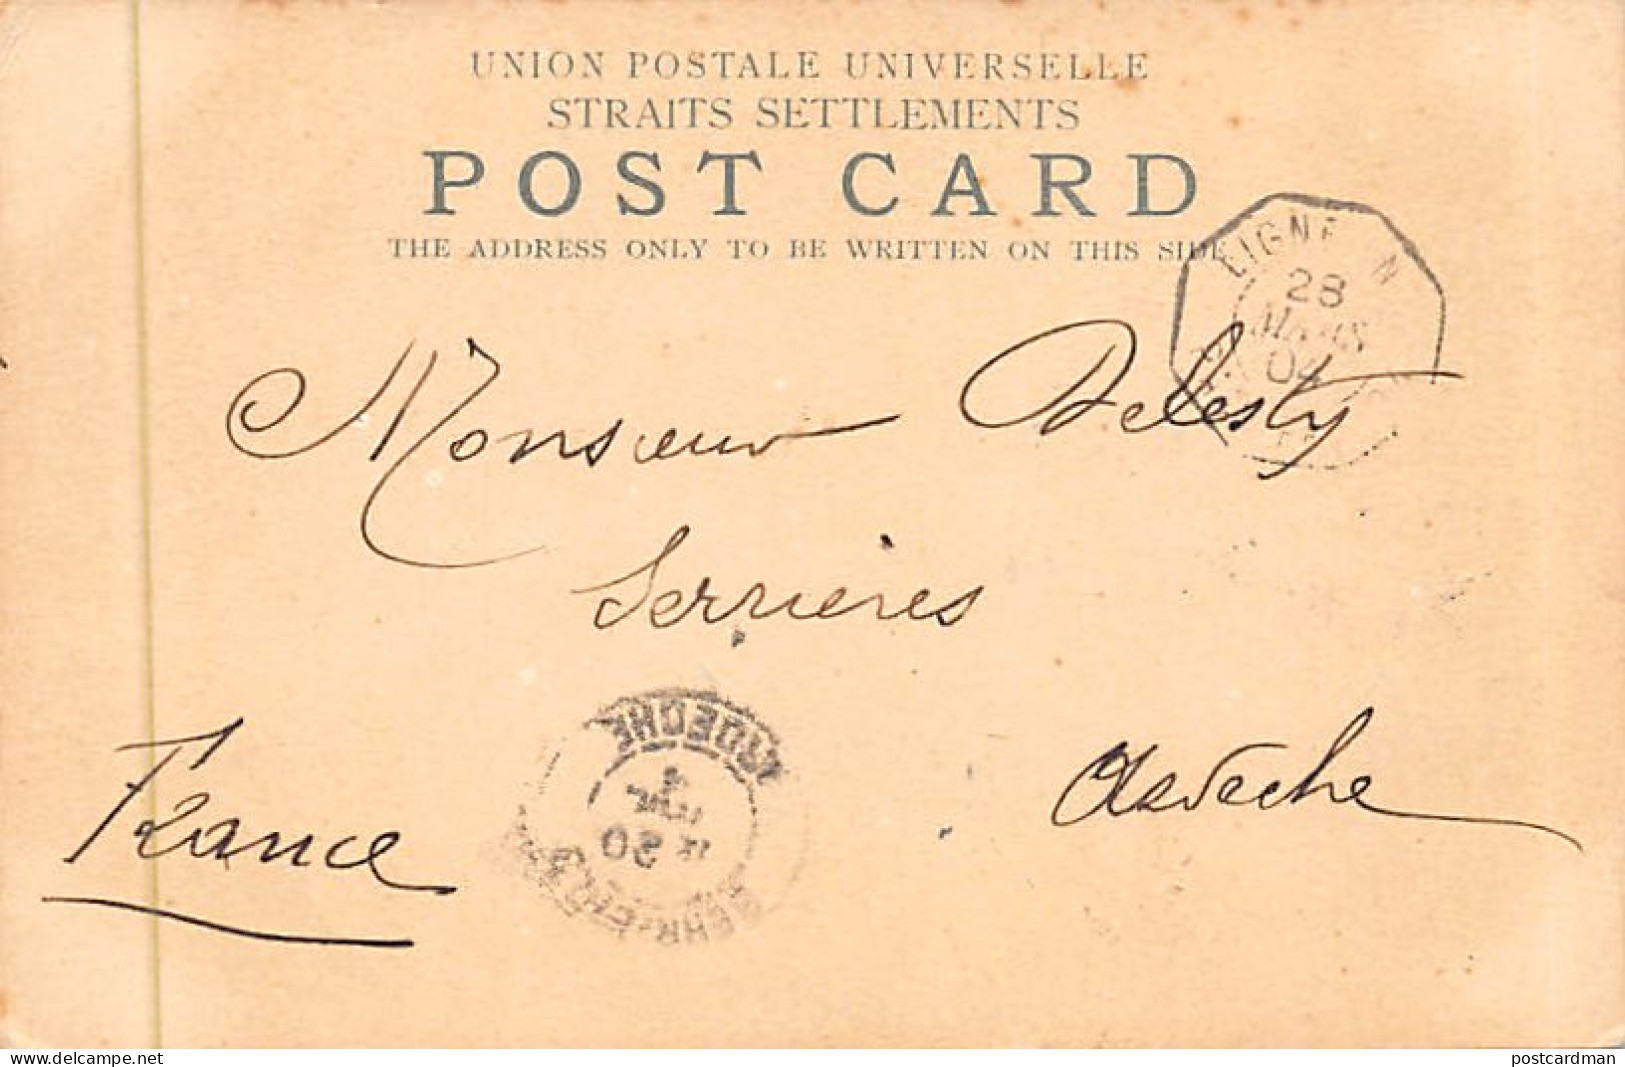 UNION POSTALE UNIVERSELLE
STRAITS SETTLEMENTS
POST CARD
THE ADDRESS ONLY TO BE WRITTEN ON THIS SIDE
LIGNE N
28
MARS
04
Monsieur Delesty
Serrières
Ardèche
France
ARDECHE
20
delcampe.net
postcardman